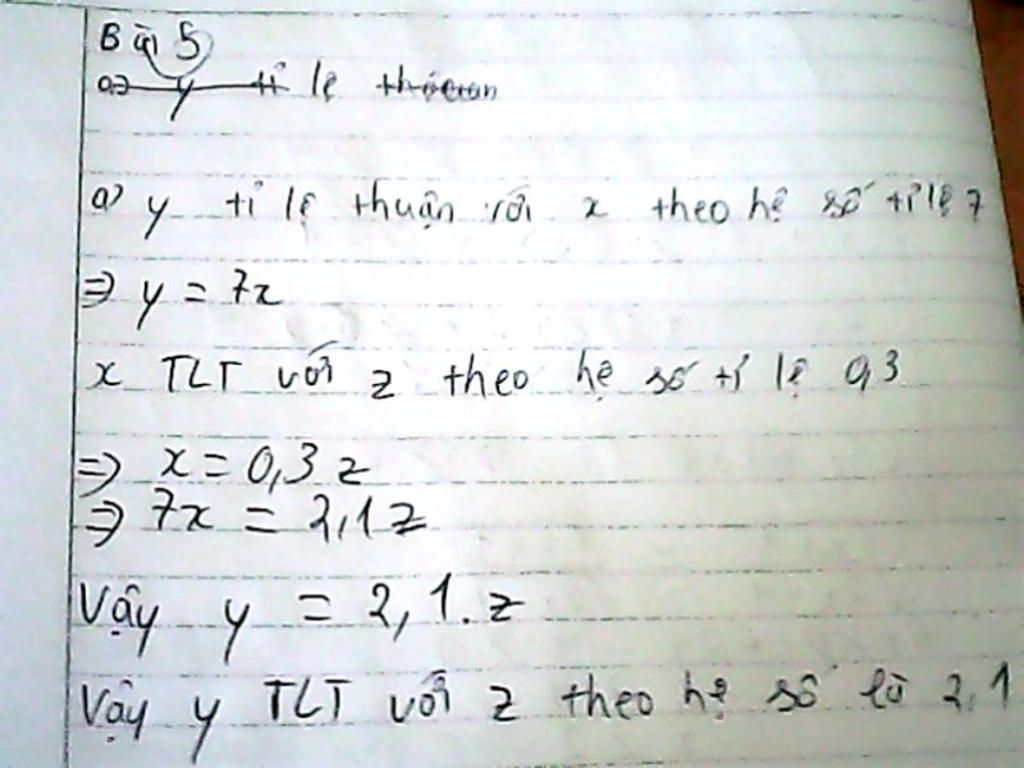 Bài 5
a) y tỉ lệ
a) y tỉ lệ thuận với x theo hệ số tỉ lệ 7
=> y = 7x
x TLT với z theo hệ số tỉ lệ 0,3
=> x = 0,3 z
=> 7x = 2,1 z
Vậy y = 2,1. z
Vậy y TLT với z theo hệ số là 2,1